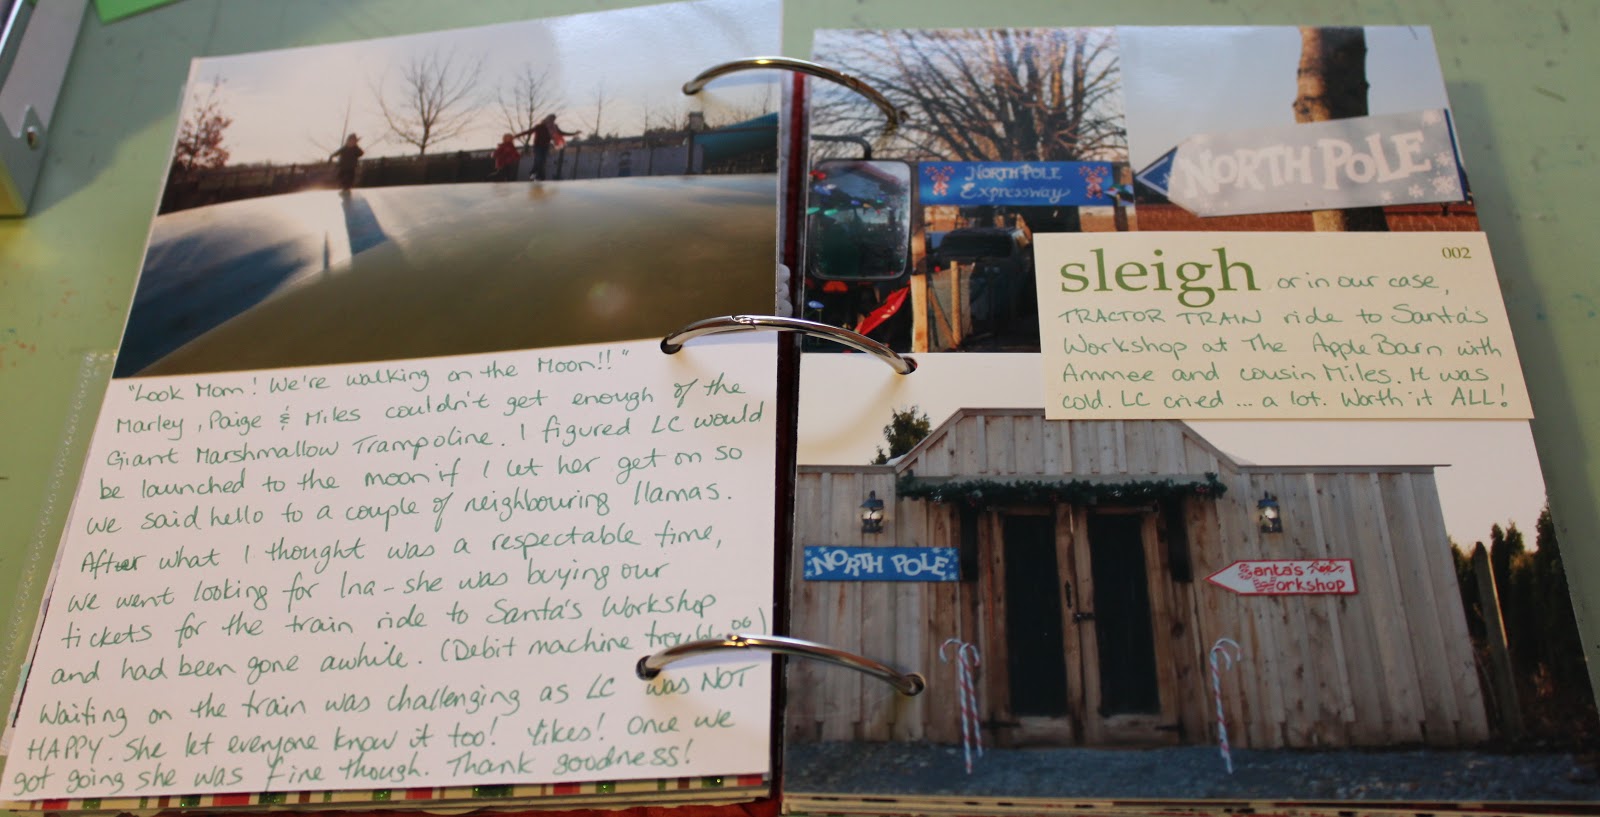 "Look Mom! We're walking on the Moon!!"
Marley, Paige & Miles couldn't get enough of the
Giant Marshmallow Trampoline. I figured LC would
be launched to the moon if I let her get on so
we said hello to a couple of neighbouring llamas.
After what I thought was a respectable time,
we went looking for Ina - she was buying our
tickets for the train ride to Santa's Workshop
and had been gone awhile. (Debit machine trouble)
Waiting on the train was challenging as LC was NOT
HAPPY. She let everyone know it too! Yikes! Once we
got going she was fine though. Thank goodness!
NORTH POLE
Expressway
NORTH POLE
002
sleigh or in our case,
TRACTOR TRAIN ride to Santa's
Workshop at The Apple Barn with
Ammee and cousin Miles. It was
cold. LC cried ... a lot. Worth it ALL!
NORTH POLE
Santa's
Workshop